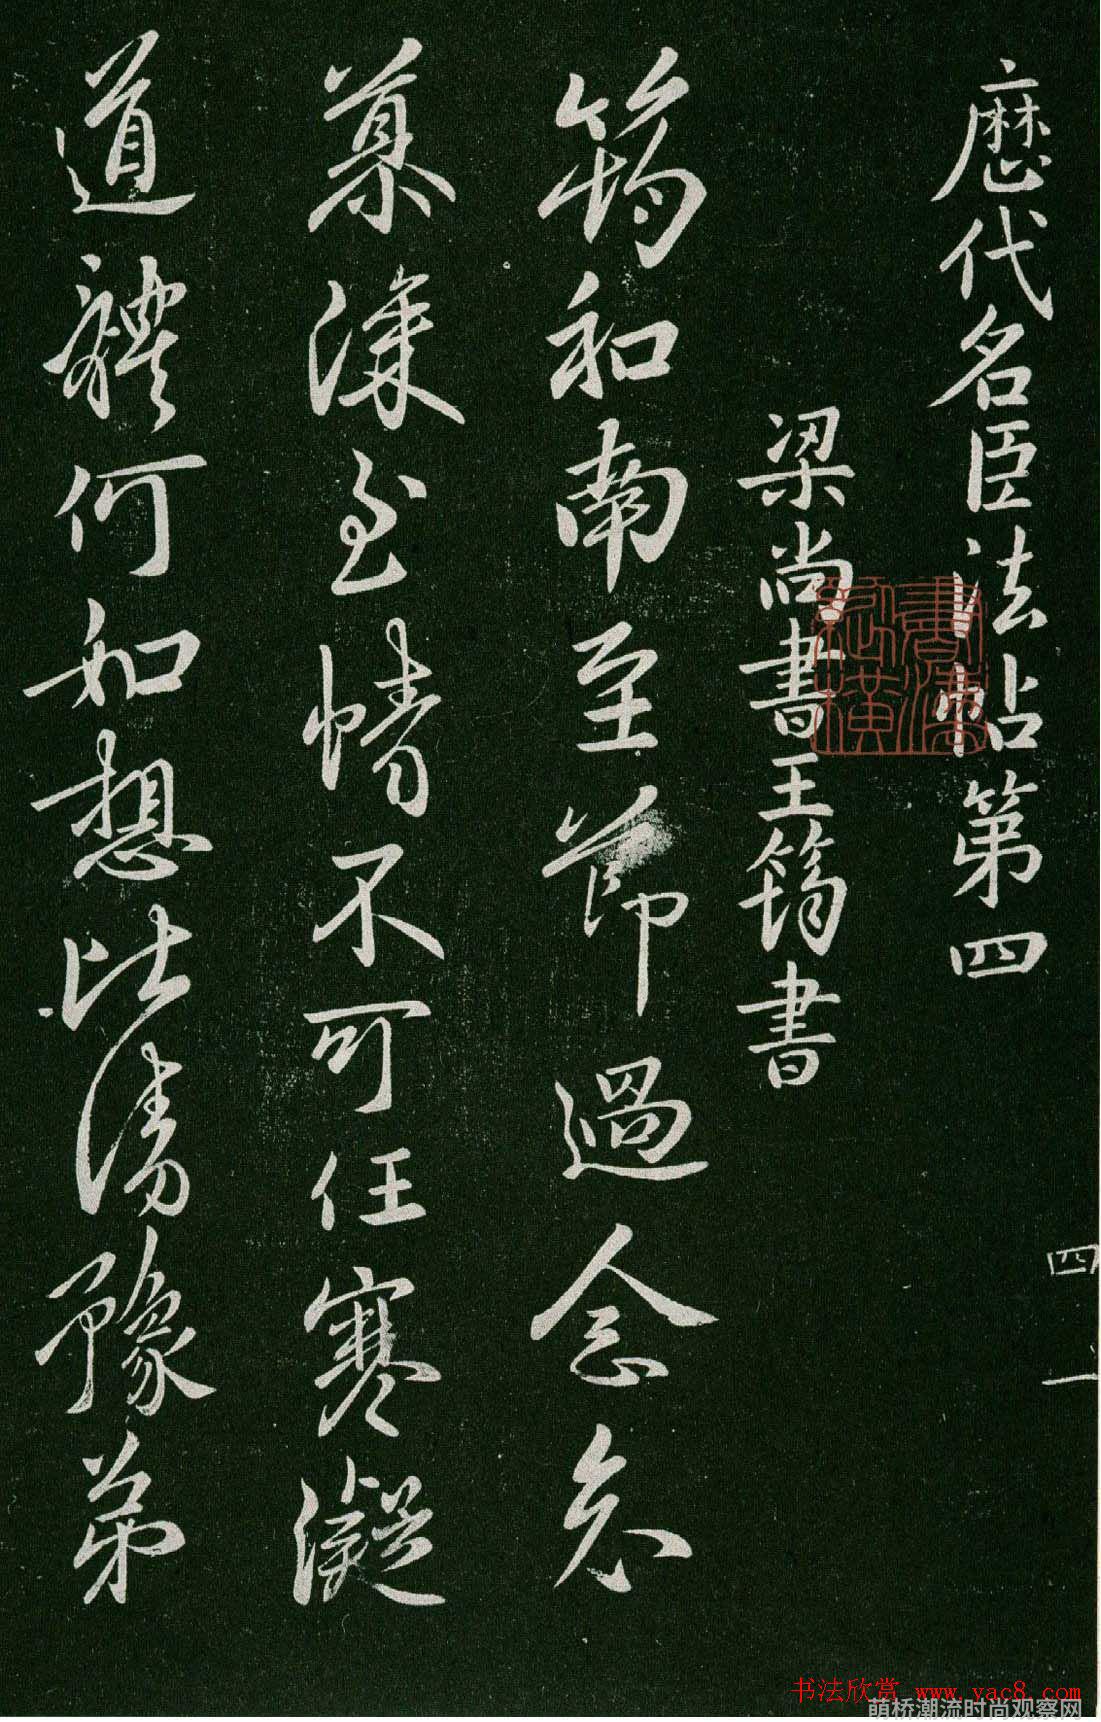 歷代名臣法帖第四
梁尚書王筠書
筠和南至節過念哀
慕深至情不可任寒凝
道體何如想比清豫弟
四 一
书法欣赏 www.yac8.com
萌桥潮流时尚观察网